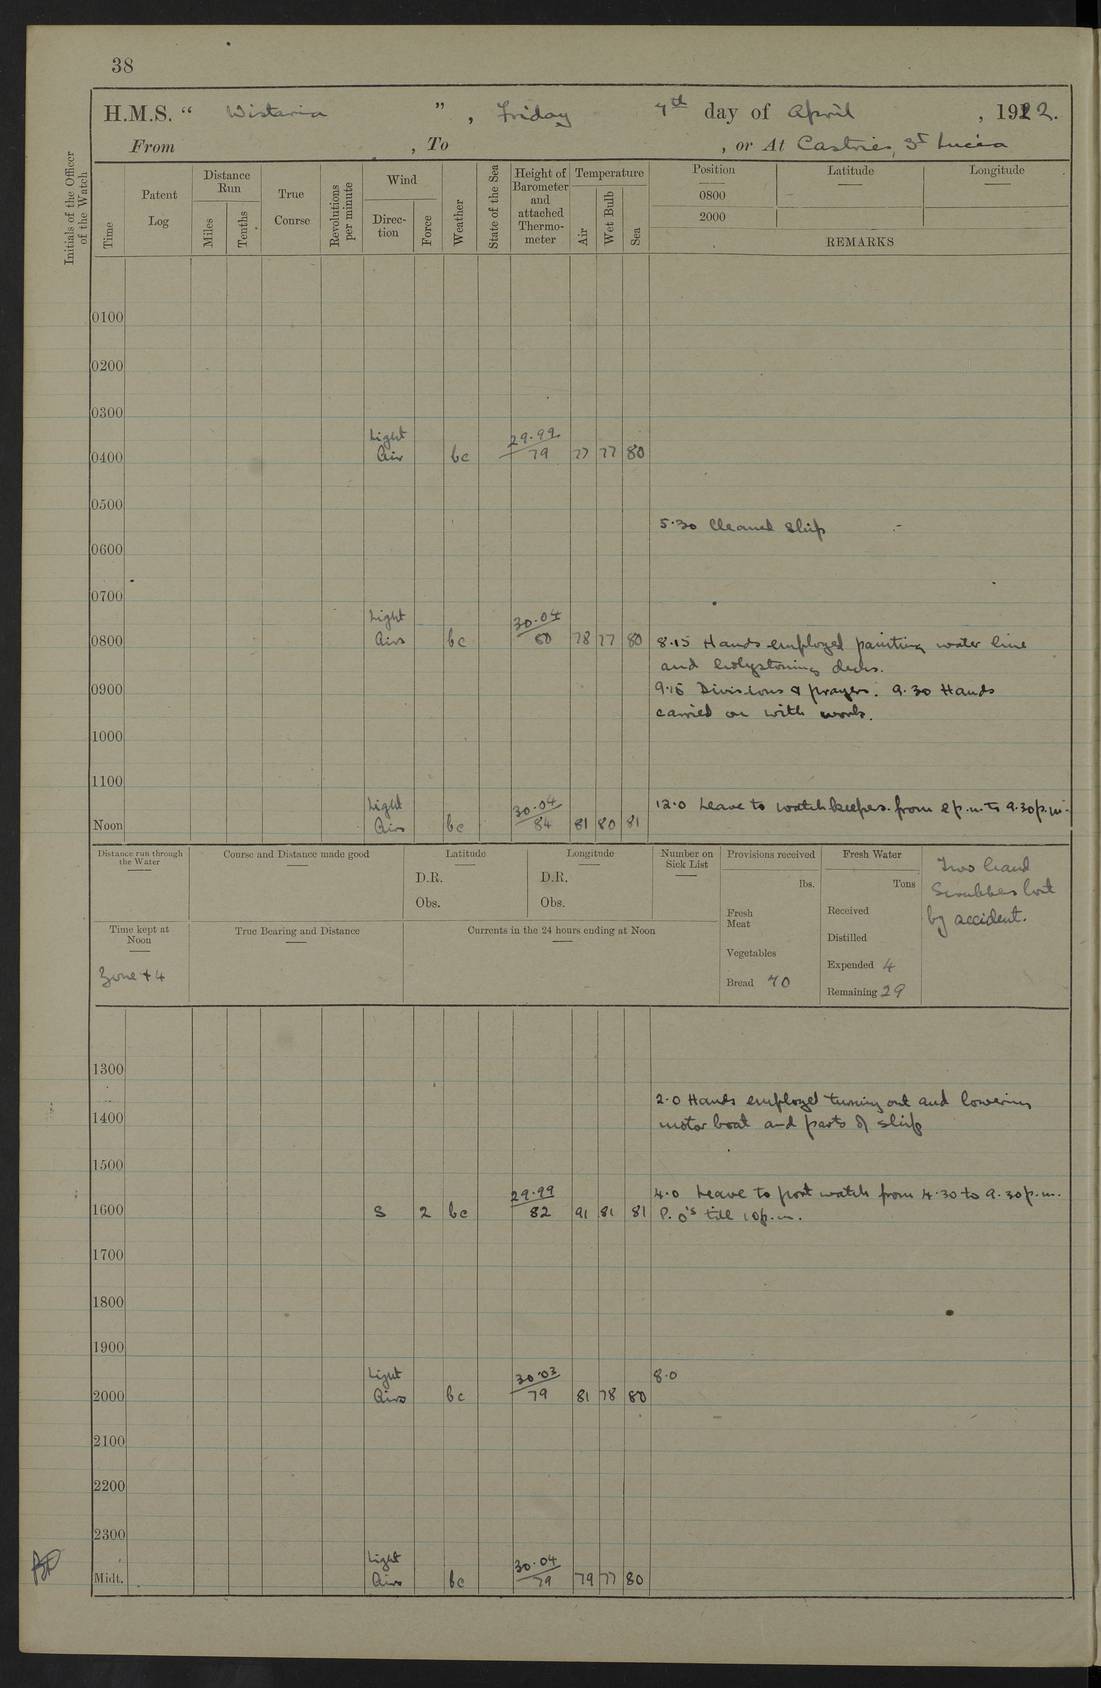 38
H.M.S. “ Wistaria ” , Friday 7th day of April , 1922.
From , To , or At Castries, St Lucia
Initials of the Officer of the Watch
Time
Patent Log
Distance Run
Miles
Tenths
True Course
Revolutions per minute
Wind
Direction
Force
Weather
State of the Sea
Height of Barometer and attached Thermometer
Temperature
Air
Wet Bulb
Sea
Position
0800
2000
Latitude
Longitude
REMARKS
0100
0200
0300
Light 29.99
0400 Air bc 79 77 77 80
0500
5.30 Cleaned Ship
0600
0700
Light 30.04
0800 Airs bc 80 78 77 80 8.15 Hands employed painting water line
and holystoning decks.
0900 9.15 Divisions & prayers. 9.30 Hands
carried on with work.
1000
1100
Light 30.04 12.0 Leave to watchkeepers from 2 p.m. to 9.30 p.m.
Noon Airs bc 84 81 80 81
Distance run through the Water
Course and Distance made good
Latitude
D.R.
Obs.
Longitude
D.R.
Obs.
Number on Sick List
Provisions received
lbs.
Fresh Meat
Vegetables
Bread 70
Fresh Water
Tons
Received
Distilled
Expended 4
Remaining 29
Two hand
Scrubbers lost
by accident.
Time kept at Noon
Zone + 4
True Bearing and Distance
Currents in the 24 hours ending at Noon
1300
2.0 Hands employed turning out and lowering
1400 motor boat and parts of ship
1500
29.99 4.0 Leave to port watch from 4.30 to 9.30 p.m.
1600 S 2 bc 82 91 81 81 P.O's till 10 p.m.
1700
1800
1900
Light 30.03 8.0
2000 Airs bc 79 81 78 80
2100
2200
2300
Light 30.04
Midt. Airs bc 79 79 77 80